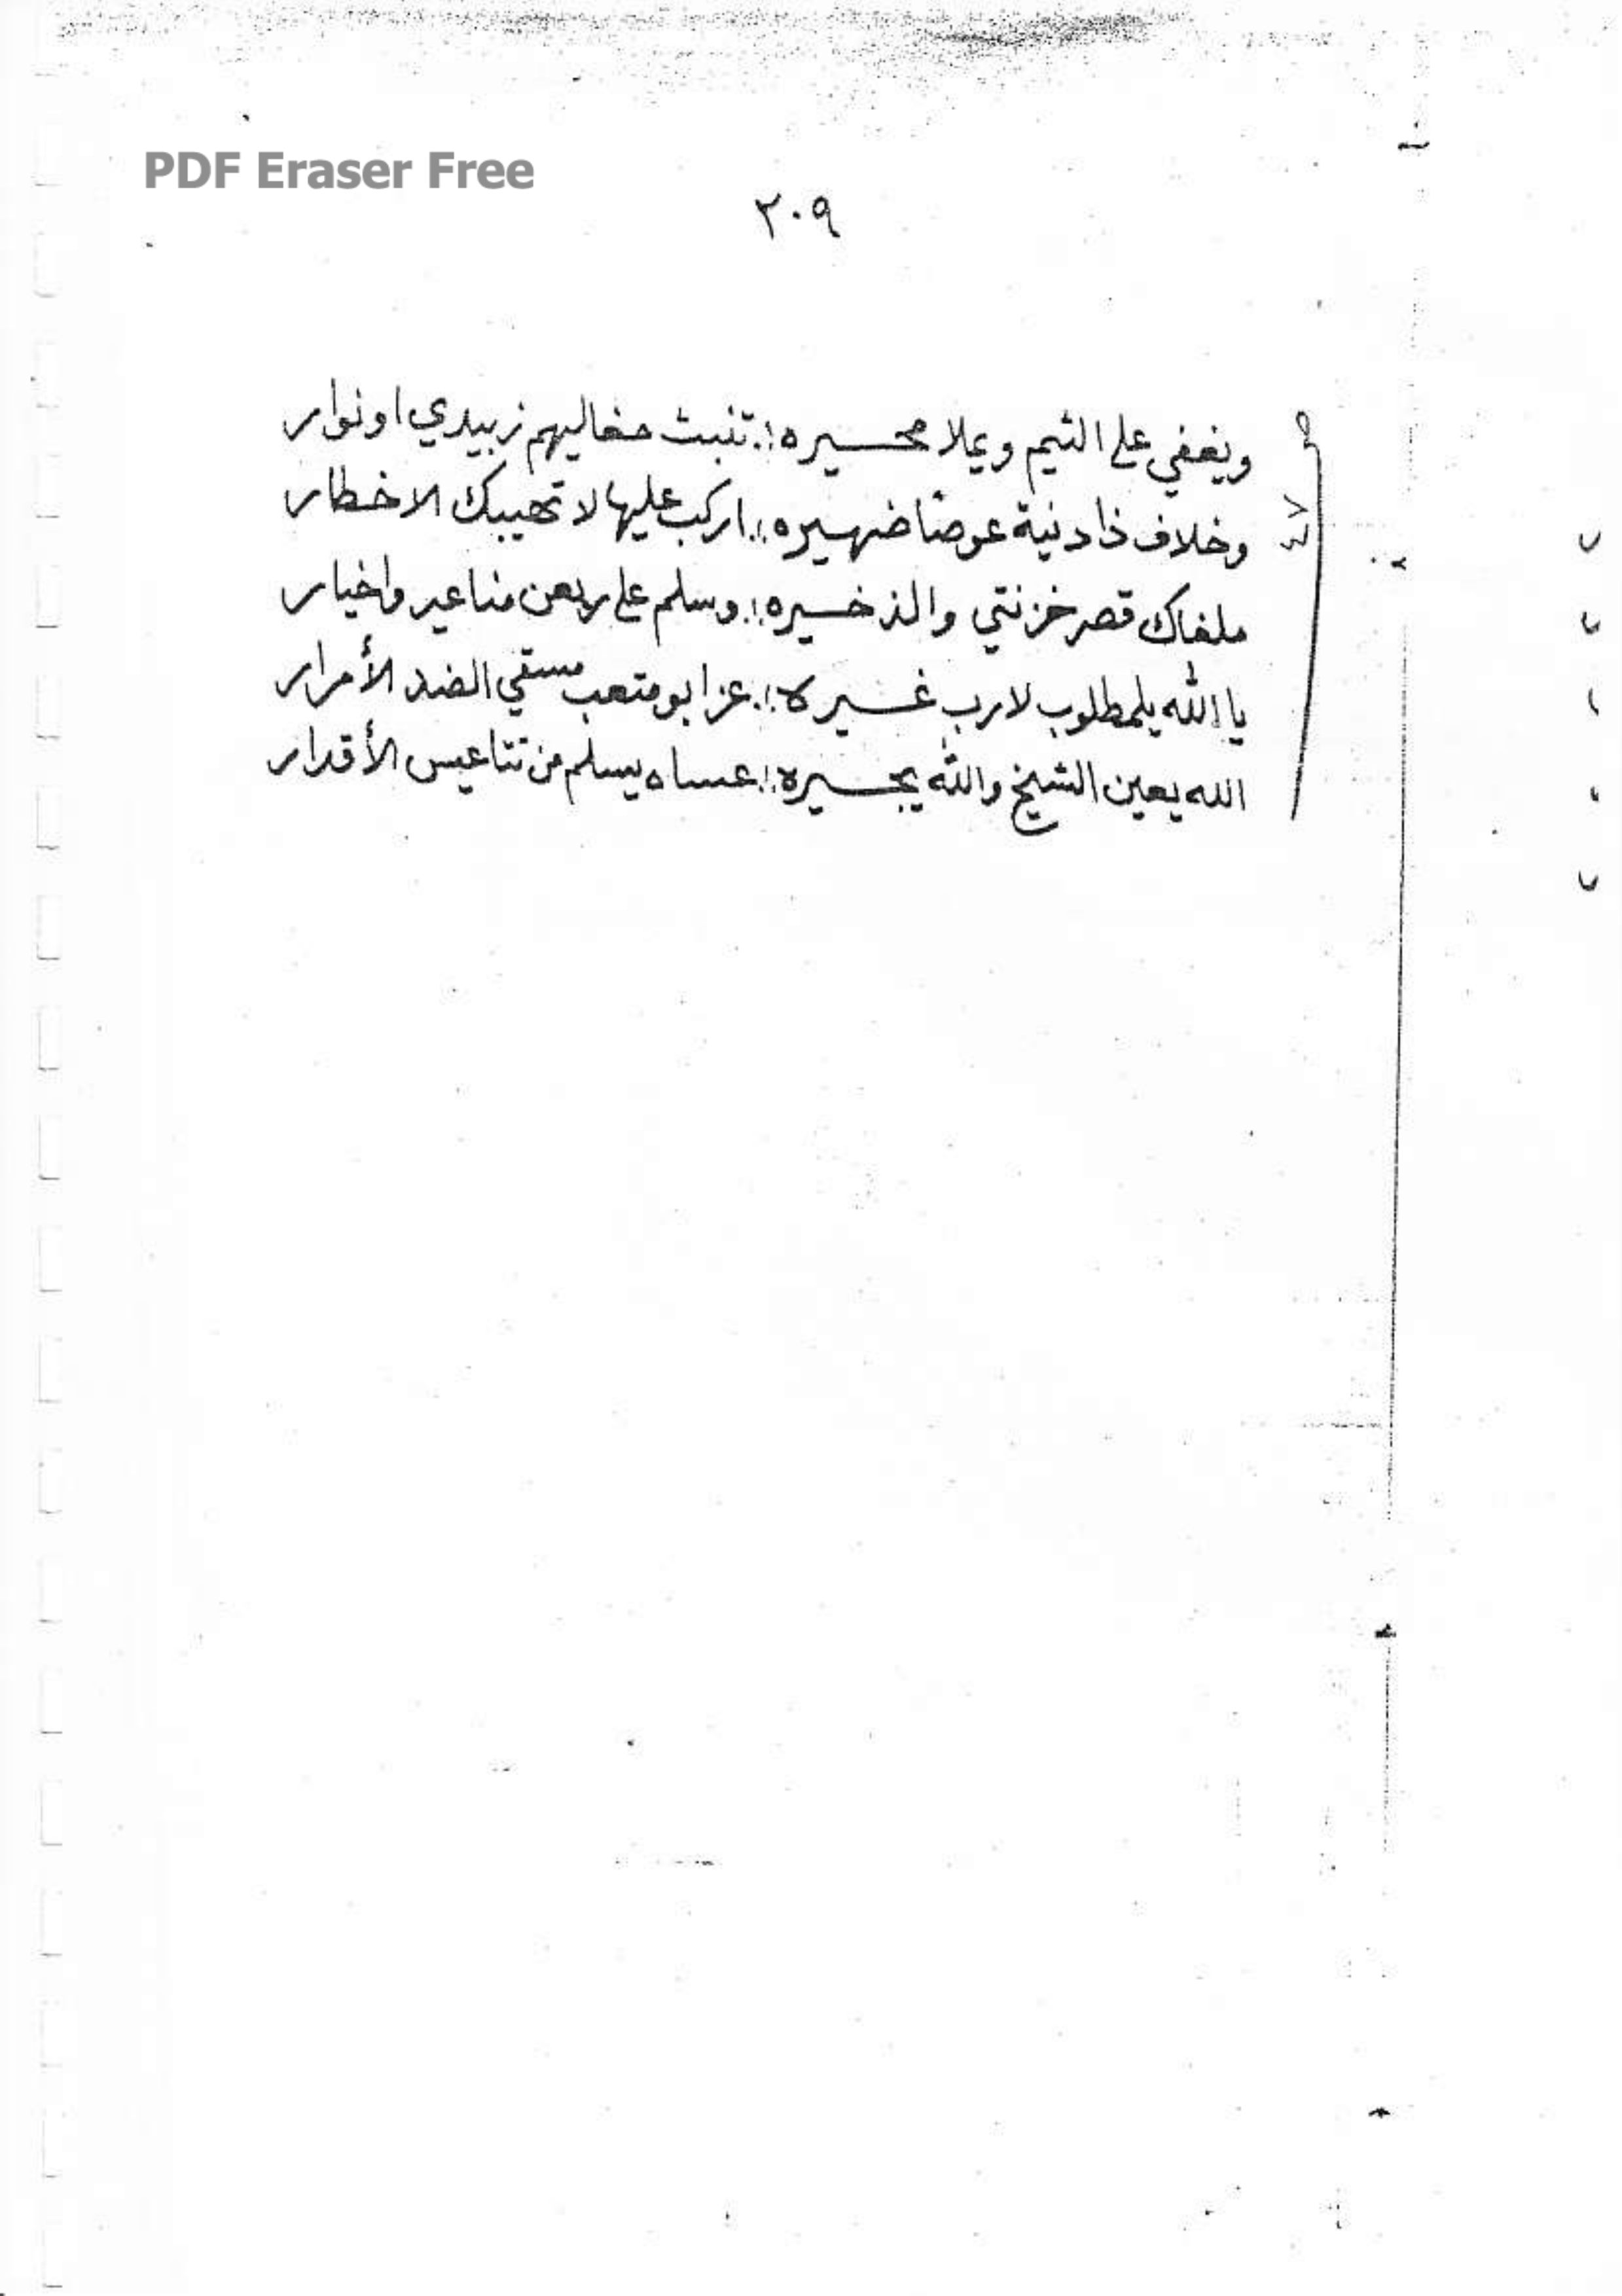 PDF Eraser Free
٢٠٩
ويغفي على الثيم ويملا محسيره :. تنبت مغاليهم زبيدي اونوار
وخلاف ذا دنية عوصاً ضهيره :. اركب عليها لا تهيبك الاخطار
ملفاك قصر خزنتي والذخسيره :. وسلم على ربعن مناعير واخيار
يا الله يلمطلوب لارب غسيره :. عز ابو متعب مسقي الضد الأمرار
الله يعين الشيخ والله يجسيره :. عساه يسلم من تتاعيس الأقدار